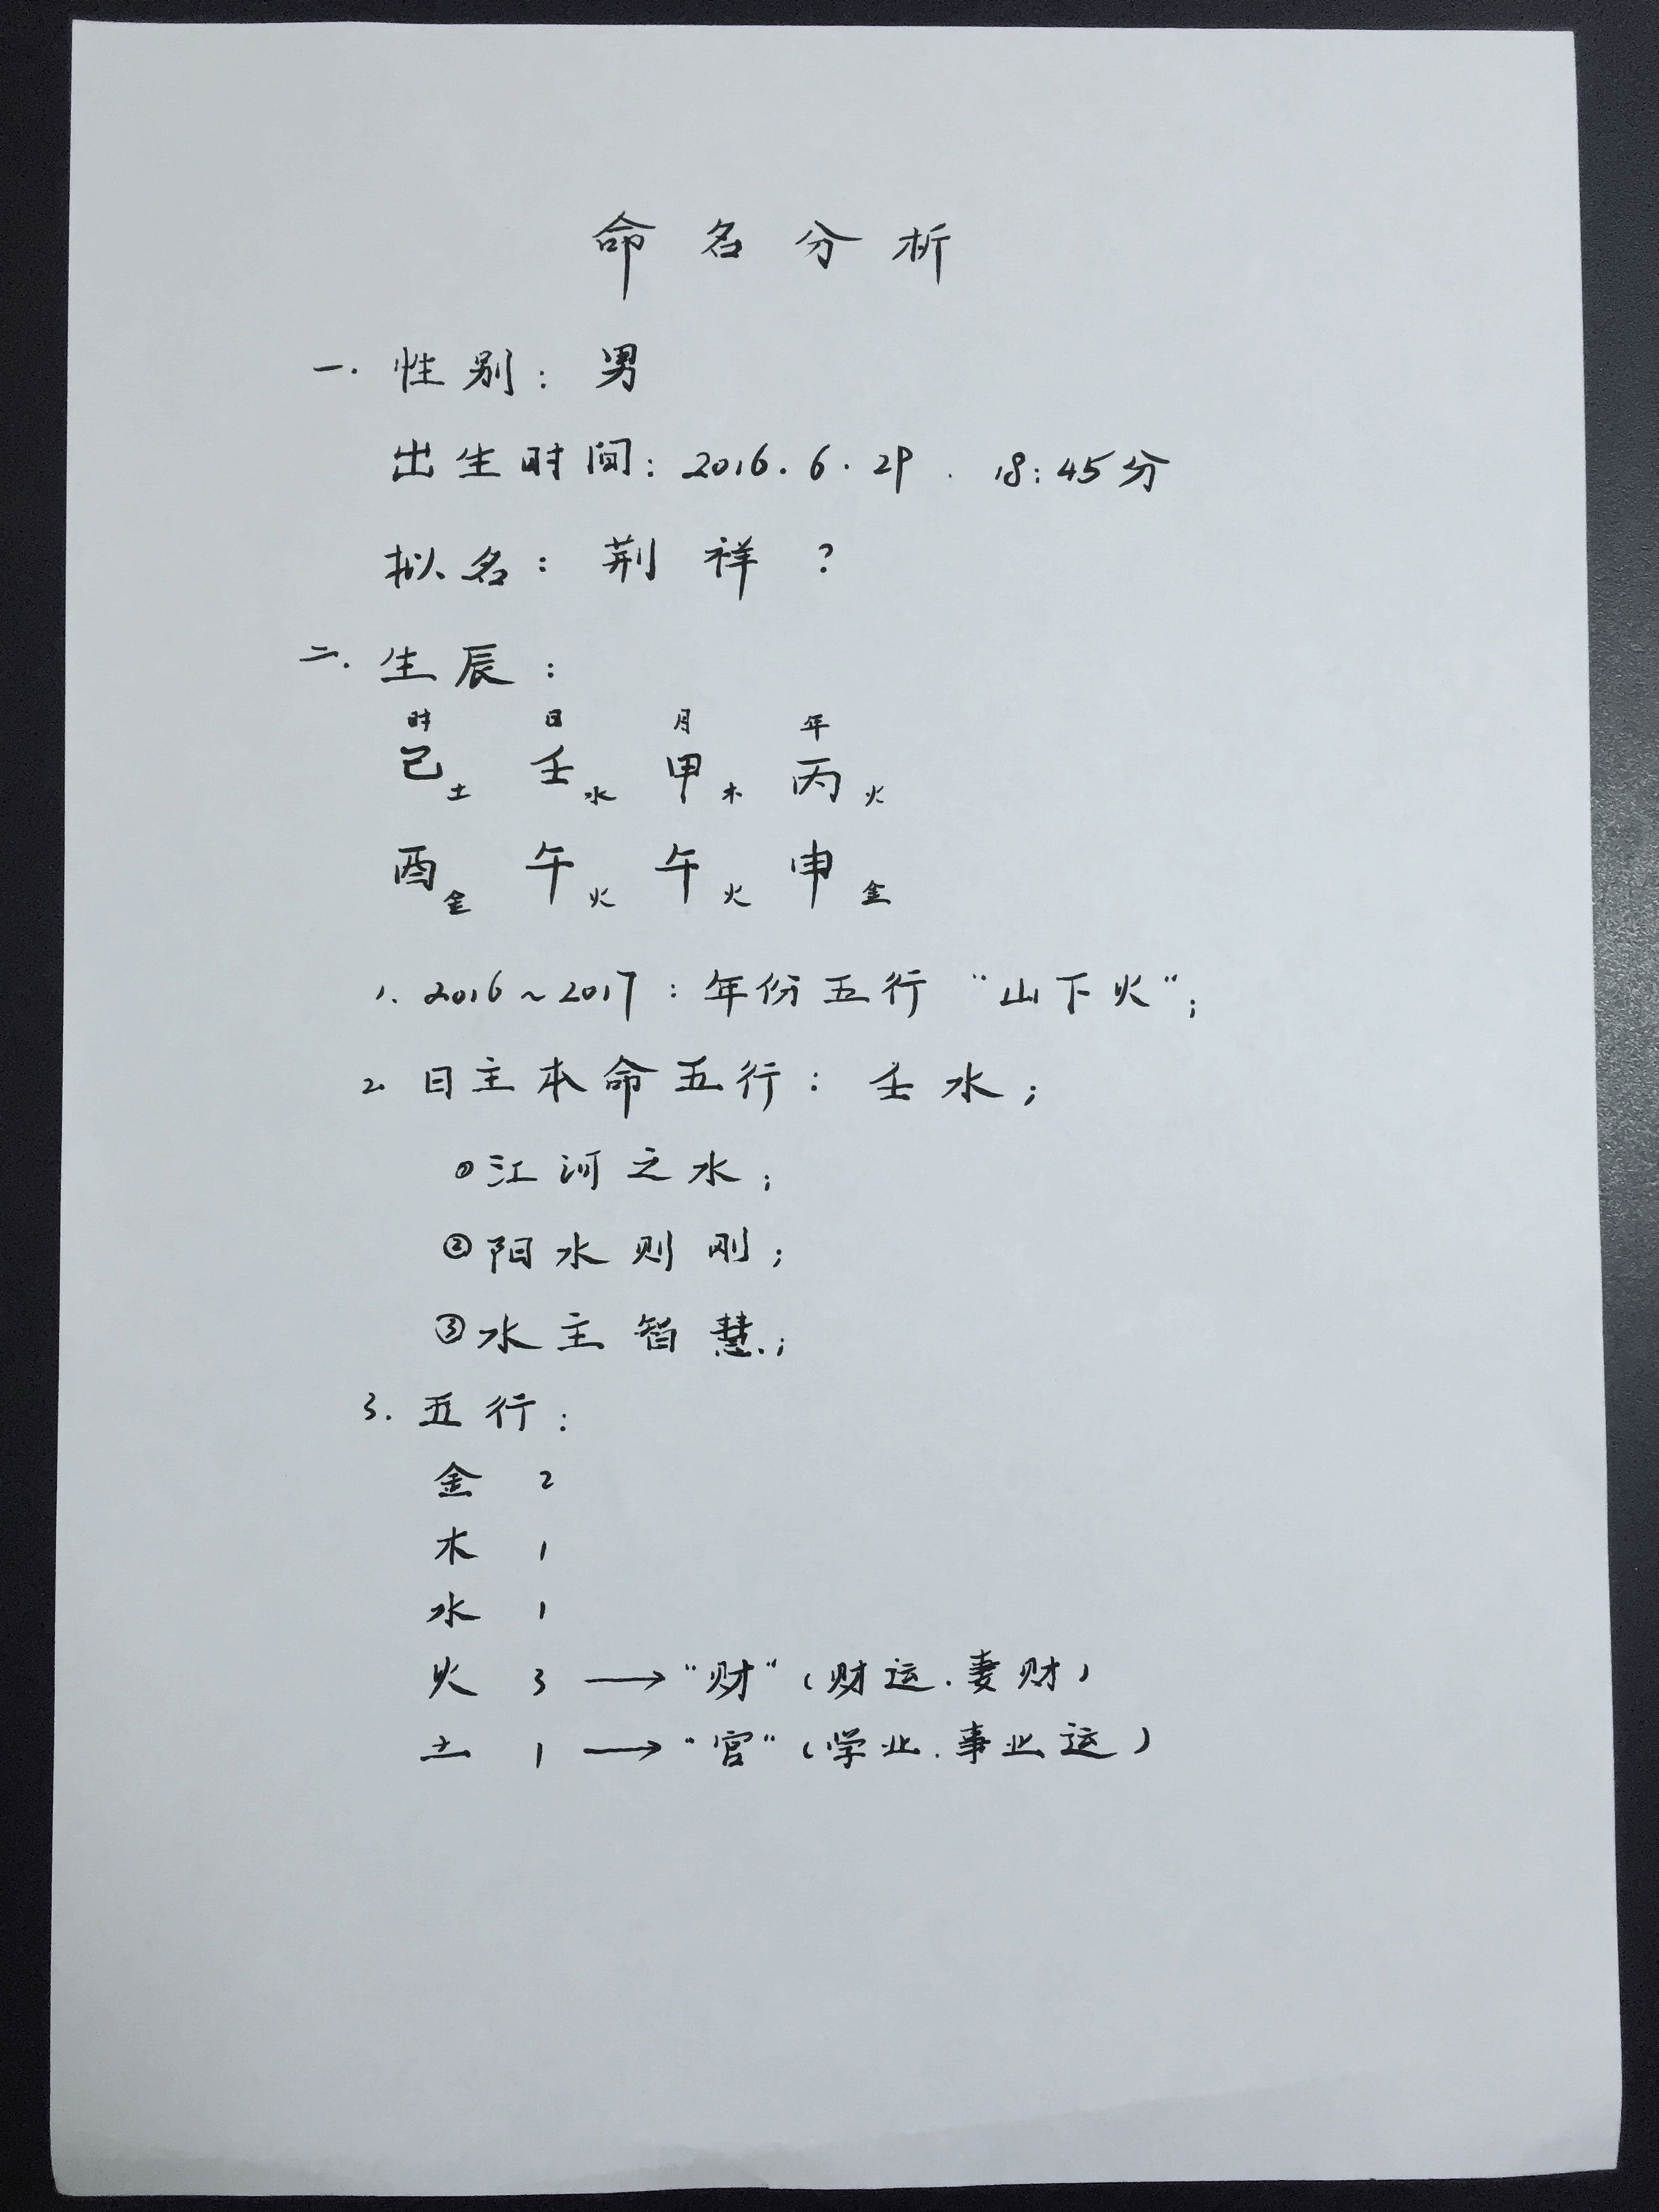 命名分析
一. 性别: 男
出生时间: 2016.6.29. 18:45分
拟名: 荆祥?
二. 生辰:
时 日 月 年
己土 壬水 甲木 丙火
酉金 午火 午火 申金
1. 2016~2017: 年份五行"山下火";
2. 日主本命五行: 壬水;
①江河之水;
②阳水则刚;
③水主智慧.;
3. 五行:
金 2
木 1
水 1
火 3 → "财"(财运.妻财)
土 1 → "官"(学业.事业运)